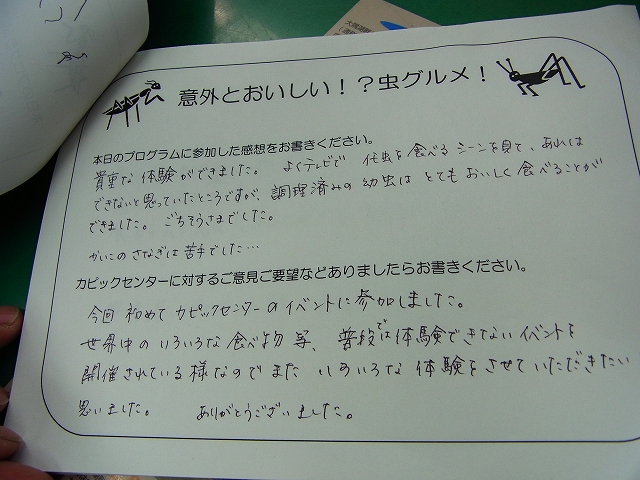 意外とおいしい！？虫グルメ！
本日のプログラムに参加した感想をお書きください。
貴重な体験ができました。 よくテレビで 虫を食べるシーンを見て、あれは
できないと思っていたところですが、調理済みの幼虫は とてもおいしく食べることが
できました。 ごちそうさまでした。
かいこのさなぎは苦手でした…
カピックセンターに対するご意見ご要望などありましたらお書きください。
今回初めてカピックセンターのイベントに参加しました。
世界中のいろいろな食べ物等、普段では体験できないイベントを
開催されている様なのでまた いろいろな体験をさせていただきたい
思いました。 ありがとうございました。